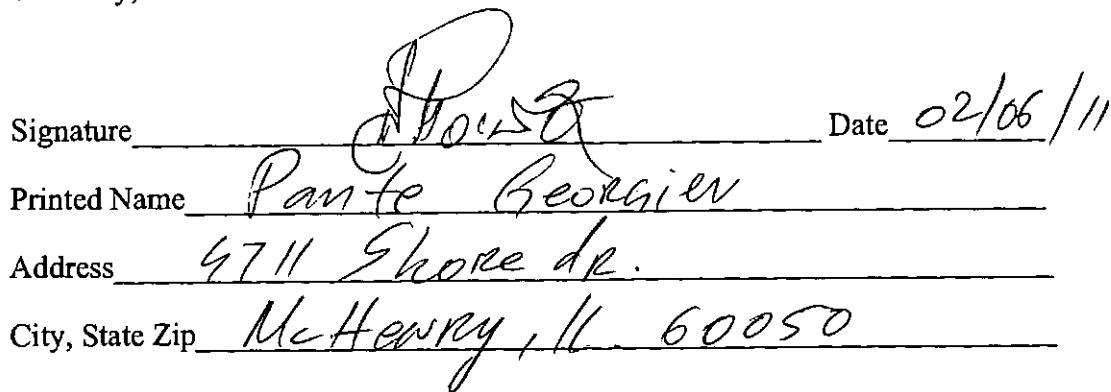 Signature Date 02/06/11
Printed Name Pante Georgiev
Address 4711 Shore dr.
City, State Zip McHenry, Il. 60050